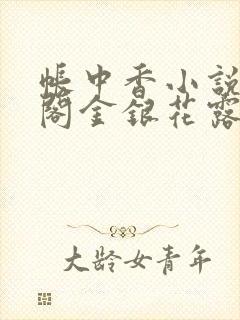 帐中香小說
閣金銀花露
大龄女青年